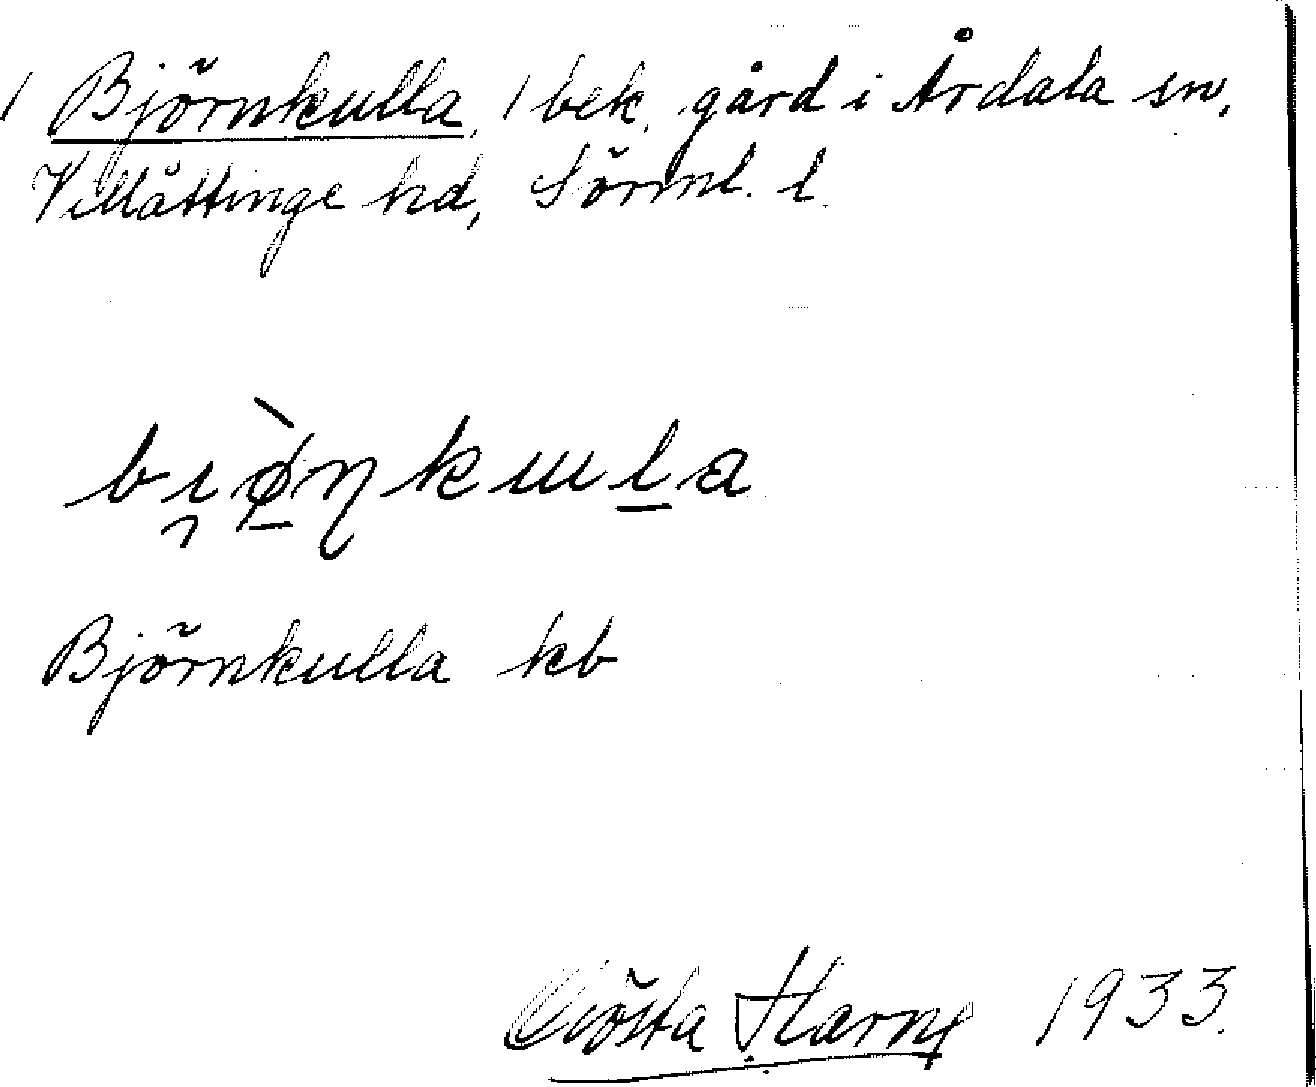 / Björnkulla, 1 bek. gård i Årdala sn,
Villåttinge hd, Sörml. l.
Björnkulla kb
Gösta 1933.